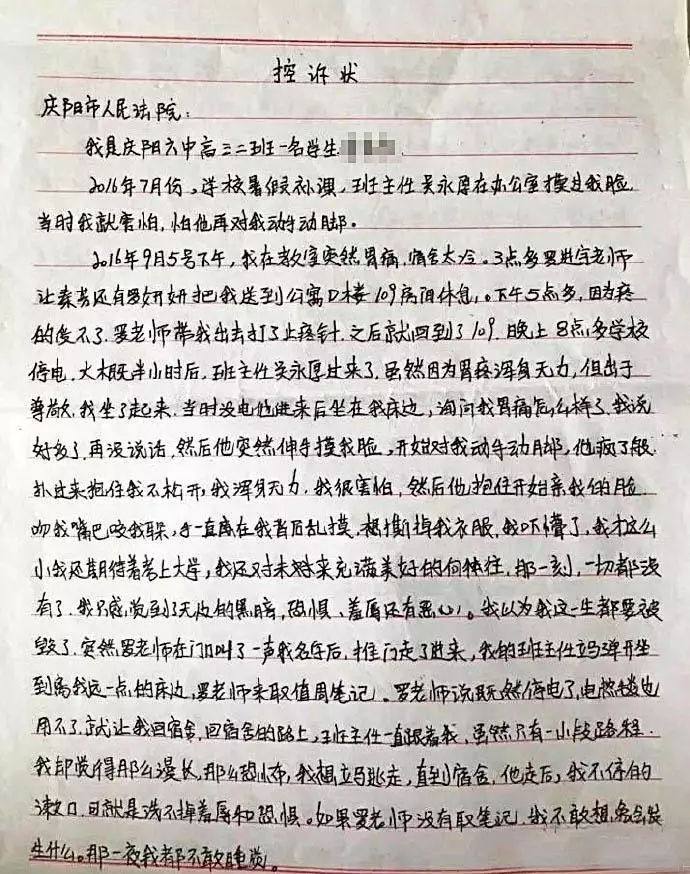 控诉状
庆阳市人民法院:
我是庆阳六中高三二班一名学生
2016年7月份,学校暑假补课,班主任吴永厚在办公室摸过我脸
当时我就害怕,怕他再对我动手动脚。
2016年9月5号下午,我在教室突然胃痛.宿舍太冷。3点多罗进宇老师
让秦芳还有罗妍妍把我送到公寓D楼109房间休息。下午5点多,因为疼
的受不了.罗老师带我出去打了止疼针.之后就回到了109.晚上8点多学校
停电,大概半小时后,班主任吴永厚过来了.虽然因为胃疼浑身无力,但出于
尊敬,我坐了起来.当时没电他进来后坐在我床边,询问我胃痛怎么样了.我说
好多了.再没说话,然后他突然伸手摸我脸,开始对我动手动脚,他疯了般.
扑过来抱住我不松开,我浑身无力.我很害怕,然后他抱住开始亲我的脸
吻我嘴巴咬我耳朵,手一直在我背后乱摸.想撕掉我衣服,我吓懵了,我才这么
小我还期待着考上大学,我还对未来充满美好的向往,那一刻,一切都没
有了.我只感觉到了无边的黑暗,恐惧、羞辱还有恶心。我以为我这一生都要被
毁了.突然罗老师在门口叫了一声我名字后,推门走了进来,我的班主任立马弹开坐
到离我远一点的床边,罗老师来取值周笔记。罗老师说既然停电了,电热毯也
用不了.就让我回宿舍,回宿舍的路上,班主任一直跟着我,虽然只有一小段路程.
我却觉得那么漫长,那么恐怖,我想立马逃走,直到宿舍,他走后,我不停的
漱口,可就是洗不掉羞辱和恐惧。如果罗老师没有取笔记.我不敢想,会发
生什么。那一夜我都不敢睡觉。